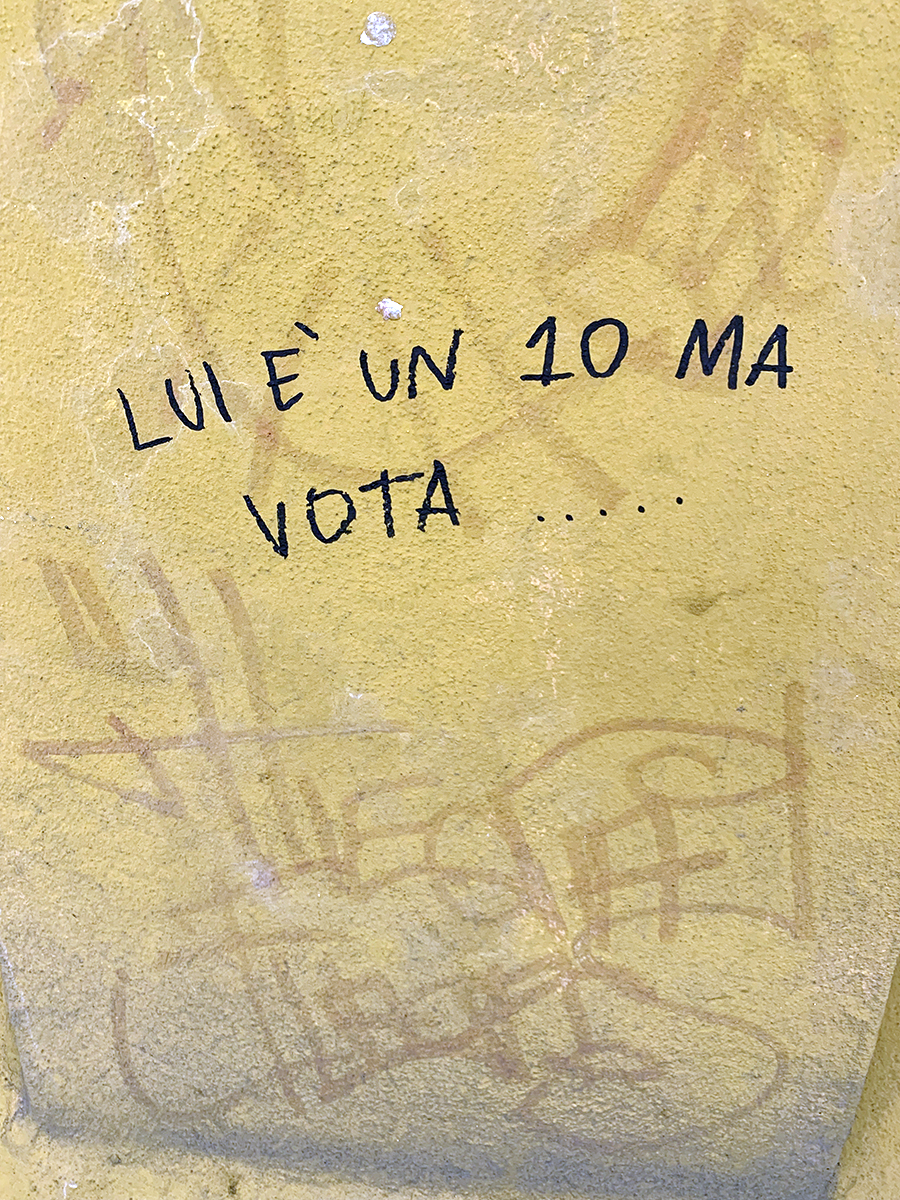 LUI È UN 10 MA
VOTA .....